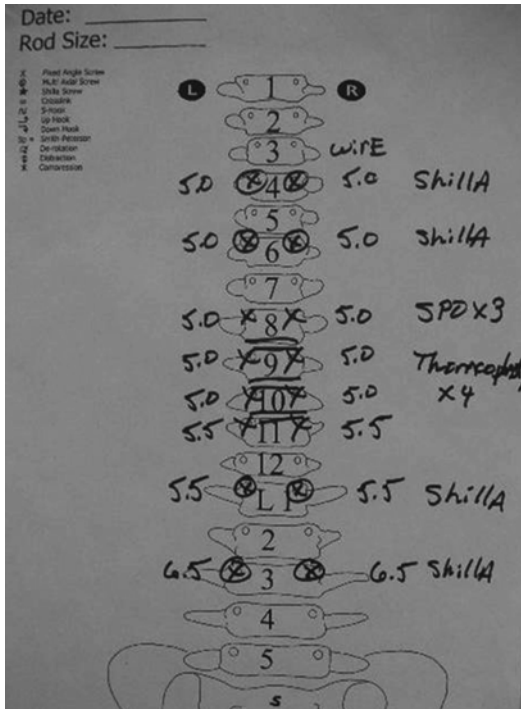 Date:
Rod Size:
x Fixed Angle Screw
Multi Axial Screw
Shilla Screw
Crosslink
S-Hook
Up Hook
Down Hook
Smith Peterson
De-rotation
Distraction
x Compression
L 1 R
2
3 wirE
5.0 4 5.0 ShillA
5
5.0 6 5.0 ShillA
7
5.0 8 5.0 SPO x 3
5.0 9 5.0
5.0 10 5.0 x 4
5.5 11 5.5
12
5.5 L 1 5.5 ShillA
2
6.5 3 6.5 ShillA
4
5
S